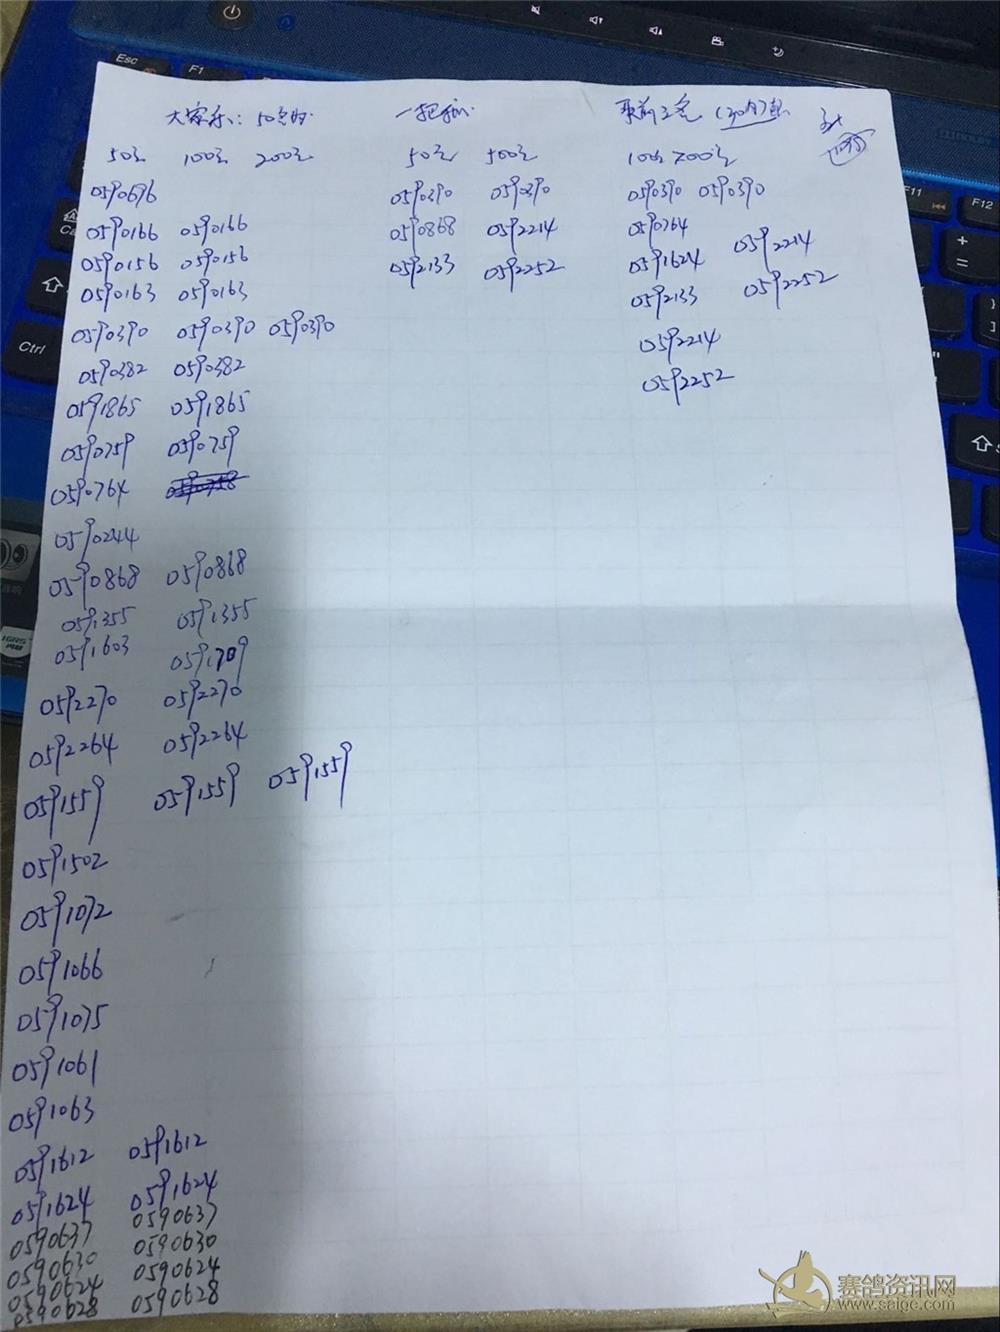 大家乐: 50名 一把抓 取前三名
50元 100元 200元 50元 500元 100元 200元
0590696 0590390 0590390 0590390 0590390
0590166 0590166 0590868 0592214 0590764
0590156 0590156 0592133 0592252 0591624 0592214
0590163 0590163 0592133 0592252
0590390 0590390 0590390 0592214
0590382 0590382 0592252
0591865 0591865
0590759 0590759
0590764
0590244
0590868 0590868
0591355 0591355
0591603 0591709
0592270 0592270
0592264 0592264
0591559 0591559 0591559
0591502
0591072
0591066
0591075
0591061
0591063
0591612 0591612
0591624 0591624
0590637 0590637
0590630 0590630
0590624 0590624
0590628 0590628
Esc F1
Ctrl
F11 F12
赛鸽资讯网
www.saige.com